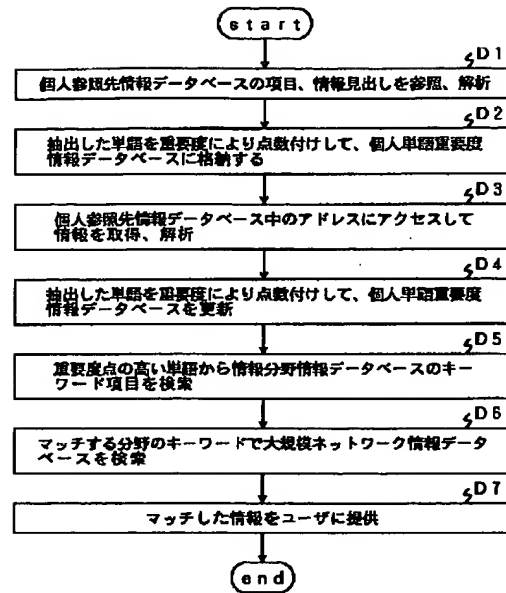 start
D1
個人参照先情報データベースの項目、情報見出しを参照、解析
D2
抽出した単語を重要度により点数付けして、個人単語重要度
情報データベースに格納する
D3
個人参照先情報データベース中のアドレスにアクセスして
情報を取得、解析
D4
抽出した単語を重要度により点数付けして、個人単語重要度
情報データベースを更新
D5
重要度点の高い単語から情報分野情報データベースのキー
ワード項目を検索
D6
マッチする分野のキーワードで大規模ネットワーク情報データ
ベースを検索
D7
マッチした情報をユーザに提供
end